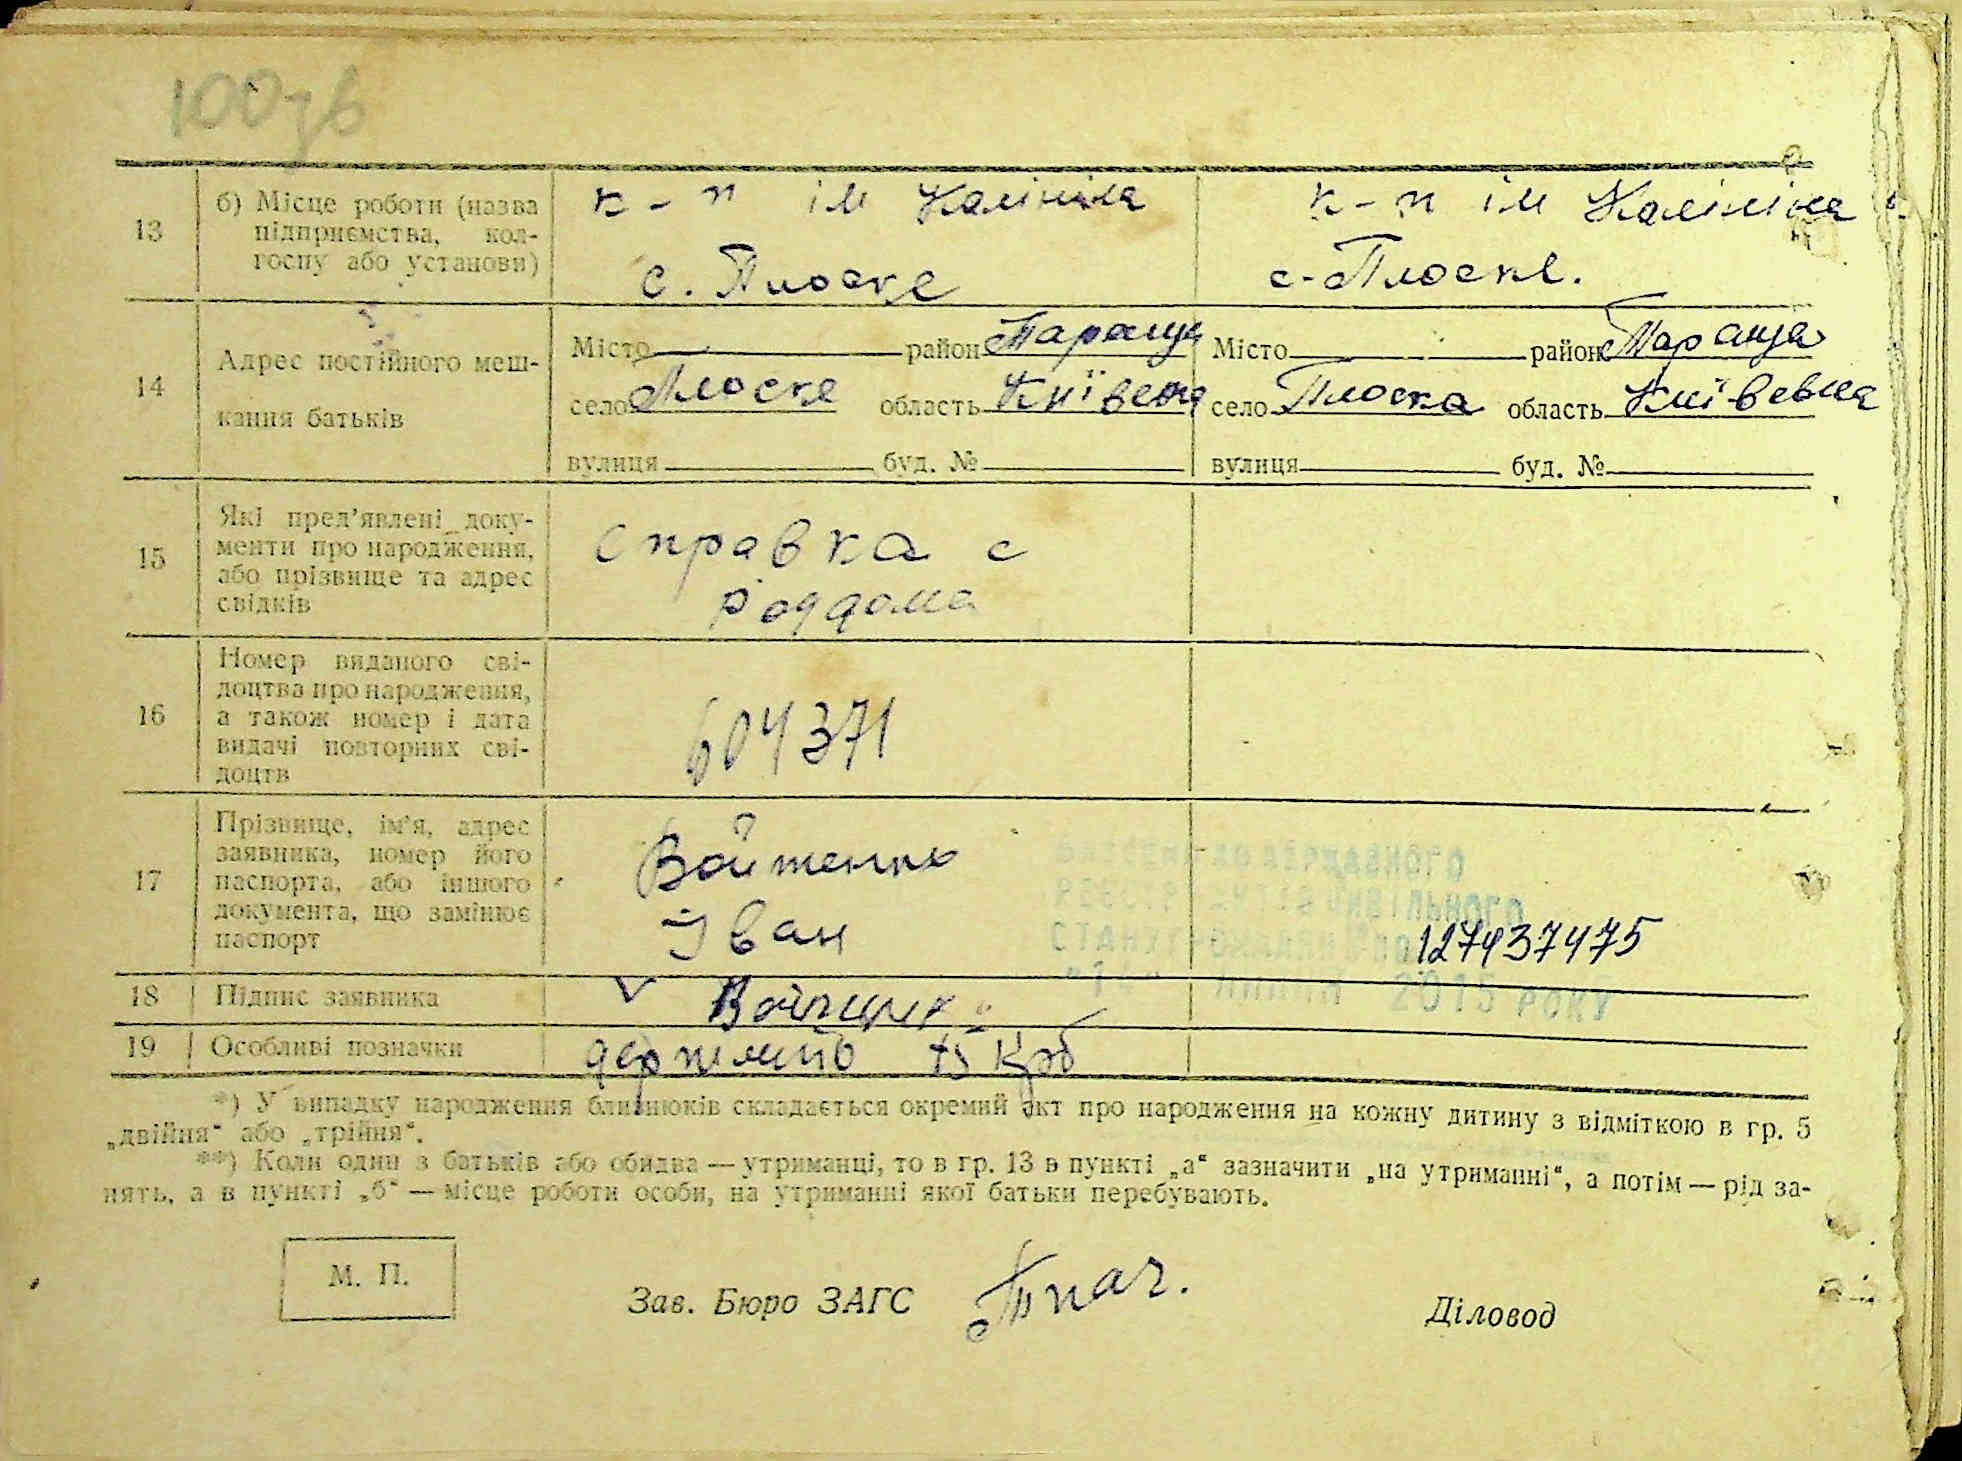 100зв
13 б) Місце роботи (назва підприємства, колгоспу або установи)
к-п ім Калініна
с. Плоске
к-п ім Калініна
с-Плоске.
14 Адрес постійного мешкання батьків
Місто район Тараща
село Плоске область Київська
вулиця буд. №
Місто район Тараща
село Плоска область
вулиця буд. №
15 Які пред'явлені документи про народження, або прізвище та адрес свідків
Справка с
роддома
16 Номер виданого свідоцтва про народження, а також номер і дата видачі повторних свідоцтв
604371
17 Прізвище, ім'я, адрес заявника, номер його паспорта, або іншого документа, що замінює паспорт
Войтенко
Іван
державного
цивільного
127437475
липня 2015 РОКУ
18 Підпис заявника
19 Особливі позначки
15 крб
*) У випадку народження близнюків складається окремий акт про народження на кожну дитину з відміткою в гр. 5
„двійня“ або „трійня“.
**) Коли один з батьків або обидва — утриманці, то в гр. 13 в пункті „а“ зазначити „на утриманні“, а потім — рід за-
нять, а в пункті „б“ — місце роботи особи, на утриманні якої батьки перебувають.
М. П.
Зав. Бюро ЗАГС
Діловод